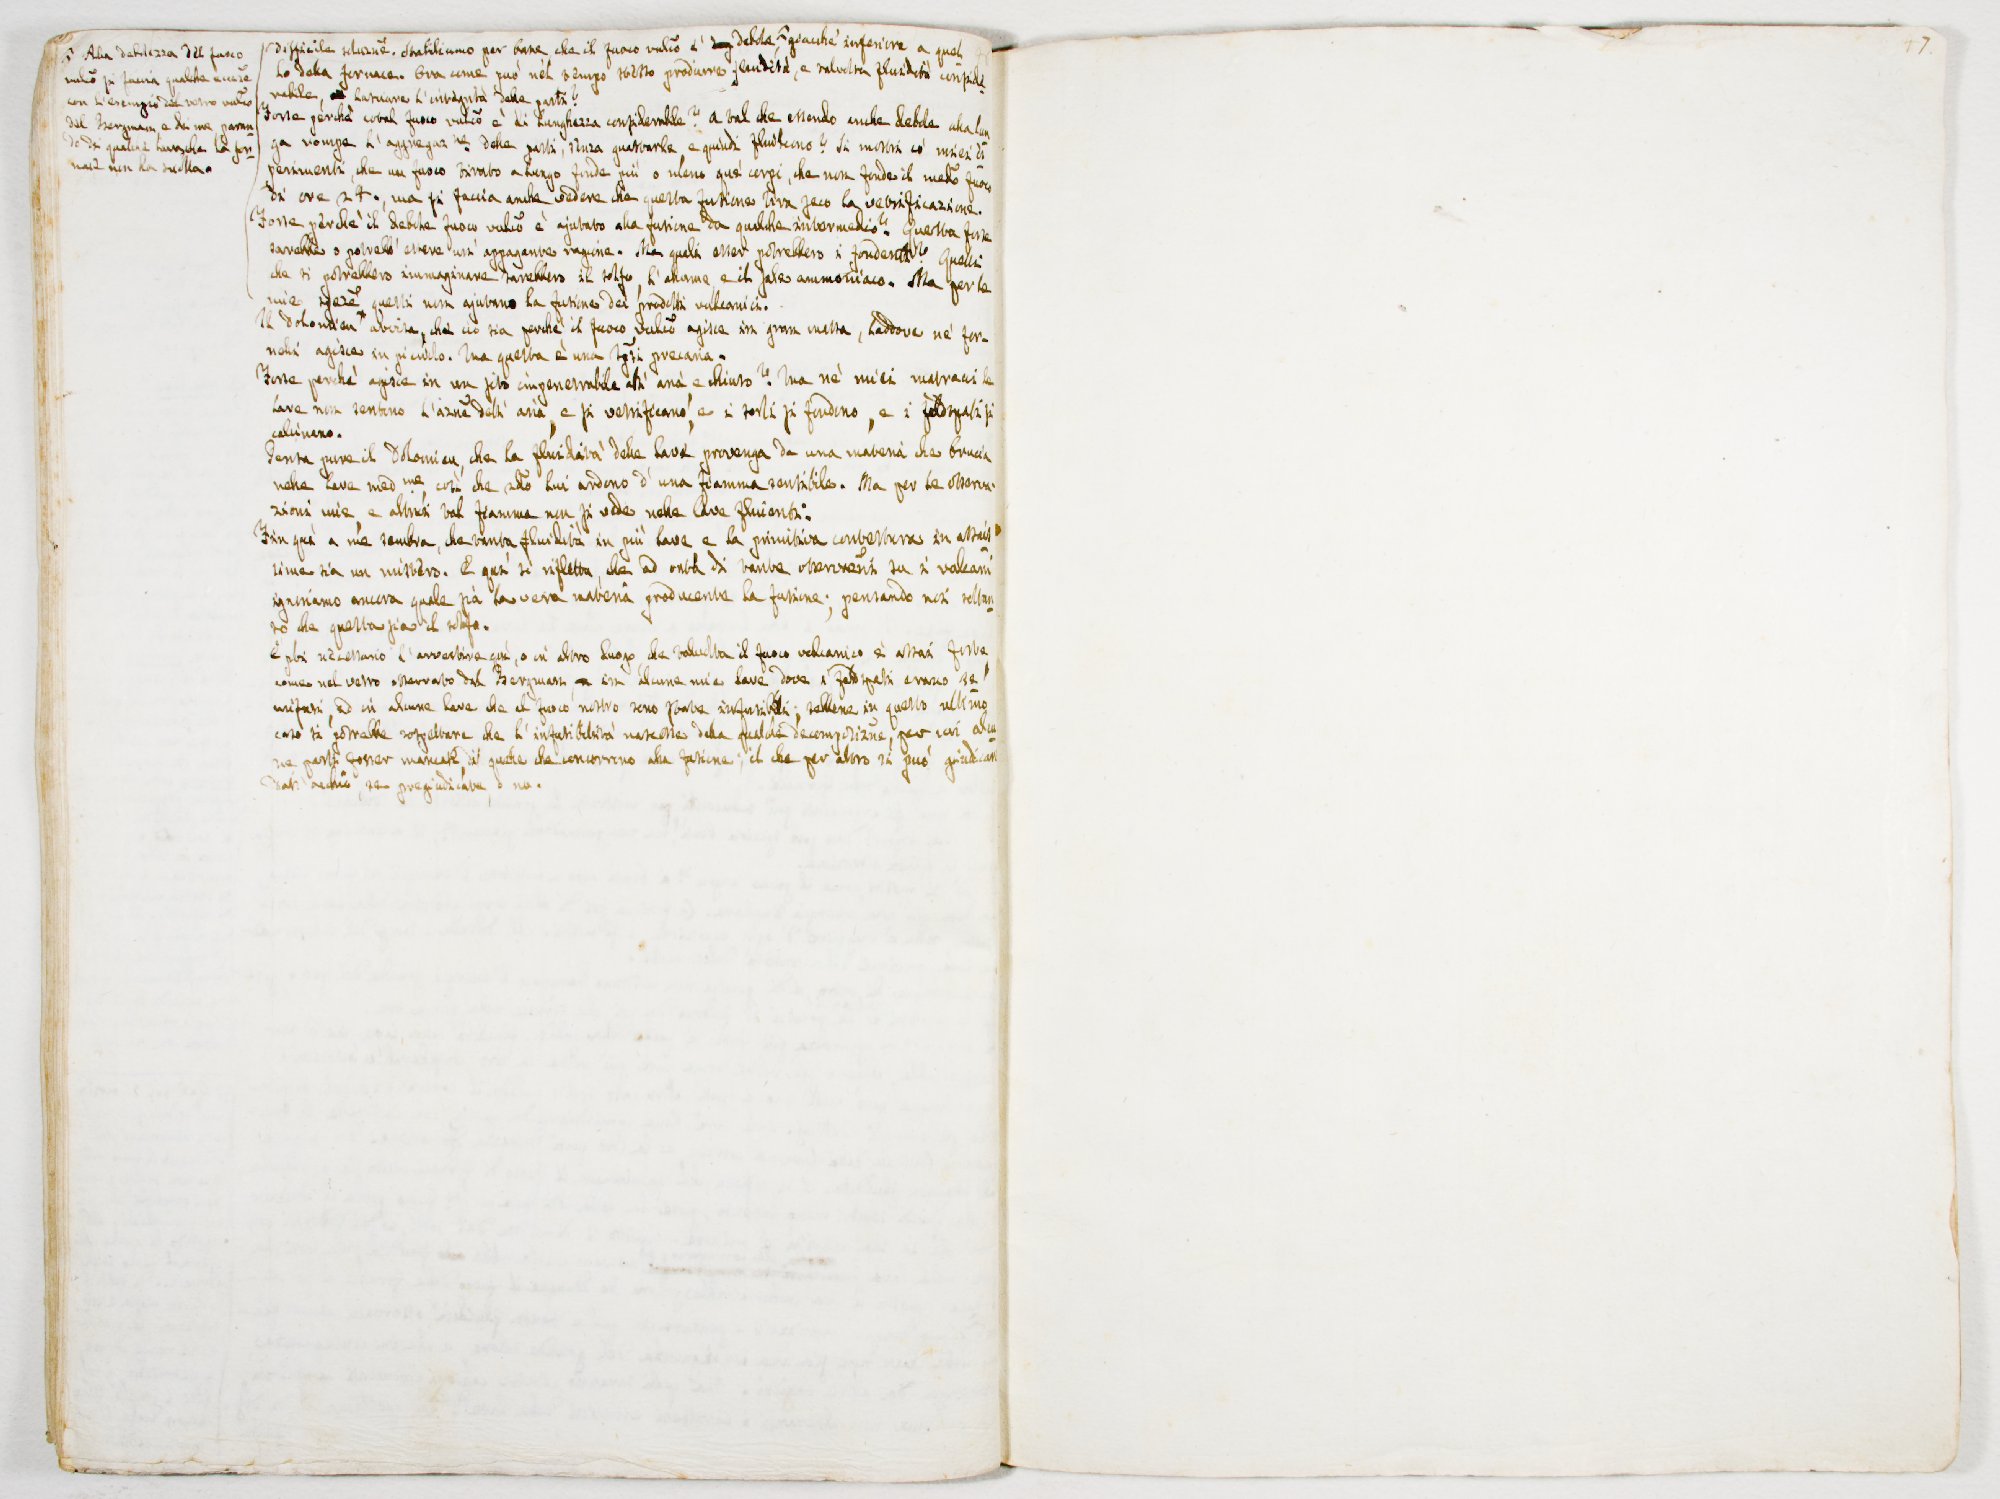 47
Alla debolezza del fuoco
vulco si faccia qualche eccezne
con l'esempio del vetro vulco
del Bergman, e di me, parlan
do di qualche lava che la for
nace non ha sciolta.
difficile soluzne. Stabiliamo per base che il fuoco vulco è debole, giacchè inferiore a quel
lo della fornace. Ora come può nel tempo stesso produrre fluidità, e talvolta fluidità conside
rabile, e lasciare l'integrità delle parti?
Forse perchè cotal fuoco vulco è di lunghezza considerabile? a tal che essendo anche debole alla lun
ga rompe l'aggregazne delle parti, senza guastarle, e quindi fluiscono? Si mostri co' miei es
perimenti, che un fuoco tirato a lungo fonde più o meno que' corpi, che non fonde il medo fuoco
di ore 24., ma si faccia anche vedere che questa fusione tira seco la vetrificazione.
Forse perchè il debole fuoco vulco è ajutato alla fusione da qualche intermedio? Questa forse
sarebbe o potrebb' essere un' appagante ragione. Ma quali esser potrebbero i fondenti? Quelli
che si potrebbero immaginare sarebbero il solfo, l'allume, e il sale ammoniaco. Ma per le
mie sperze questi non ajutano la fusione dei prodotti vulcanici.
Il Dolomieu avvisa, che ciò sia perchè il fuoco vulco agisce in gran massa, laddove ne' for-
nelli agisce in piccolo. Ma questa è una ipotsi precaria.
Forse perchè agisce in un sito impenetrabile all' aria e chiuso? Ma ne' miei matracci le
lave non sentono l'azne dell' aria, e si vetrificano, e i sorli si fondono, e i feldspati si
calcinano.
Pensa pure il Dolomieu, che la fluidità delle lave provenga da una materia che brucia
nelle lave medme, così che sdo lui ardono d' una fiamma sensibile. Ma per le osserva-
zioni mie, e altrui tal fiamma non si vede nelle lave fluenti.
Fin quì a me sembra, che tanta fluidità in più lave e la primitiva contestura in assais
sime sia un mistero. E quì si rifletta, che ad onta di tante osservazni su i vulcani
ignoriamo ancora quale sia la vera materia producente la fusione; pensando noi soltan
to che questa sia il solfo.
È poi necessario l'avvertire quì, o in altro luogo, che talvolta il fuoco vulcanico è assai forte,
come nel vetro osservato dal Bergman, in alcune mie lave dove i feldspati erano se
mifusi, ed in alcune lave che al fuoco nostro sono state infusibili; sebbene in questo ultimo
caso si potrebbe sospettare che l'infusibilità nascesse dalla qualche decomposizne, per cui alcu
ne parti fosser mancate di quelle che concorrono alla fusione; il che per altro si può giudicare
dall' occhio, se pregiudicate, o no.